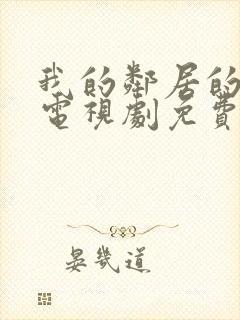 我的鄰居的
電視劇免費
晏幾道